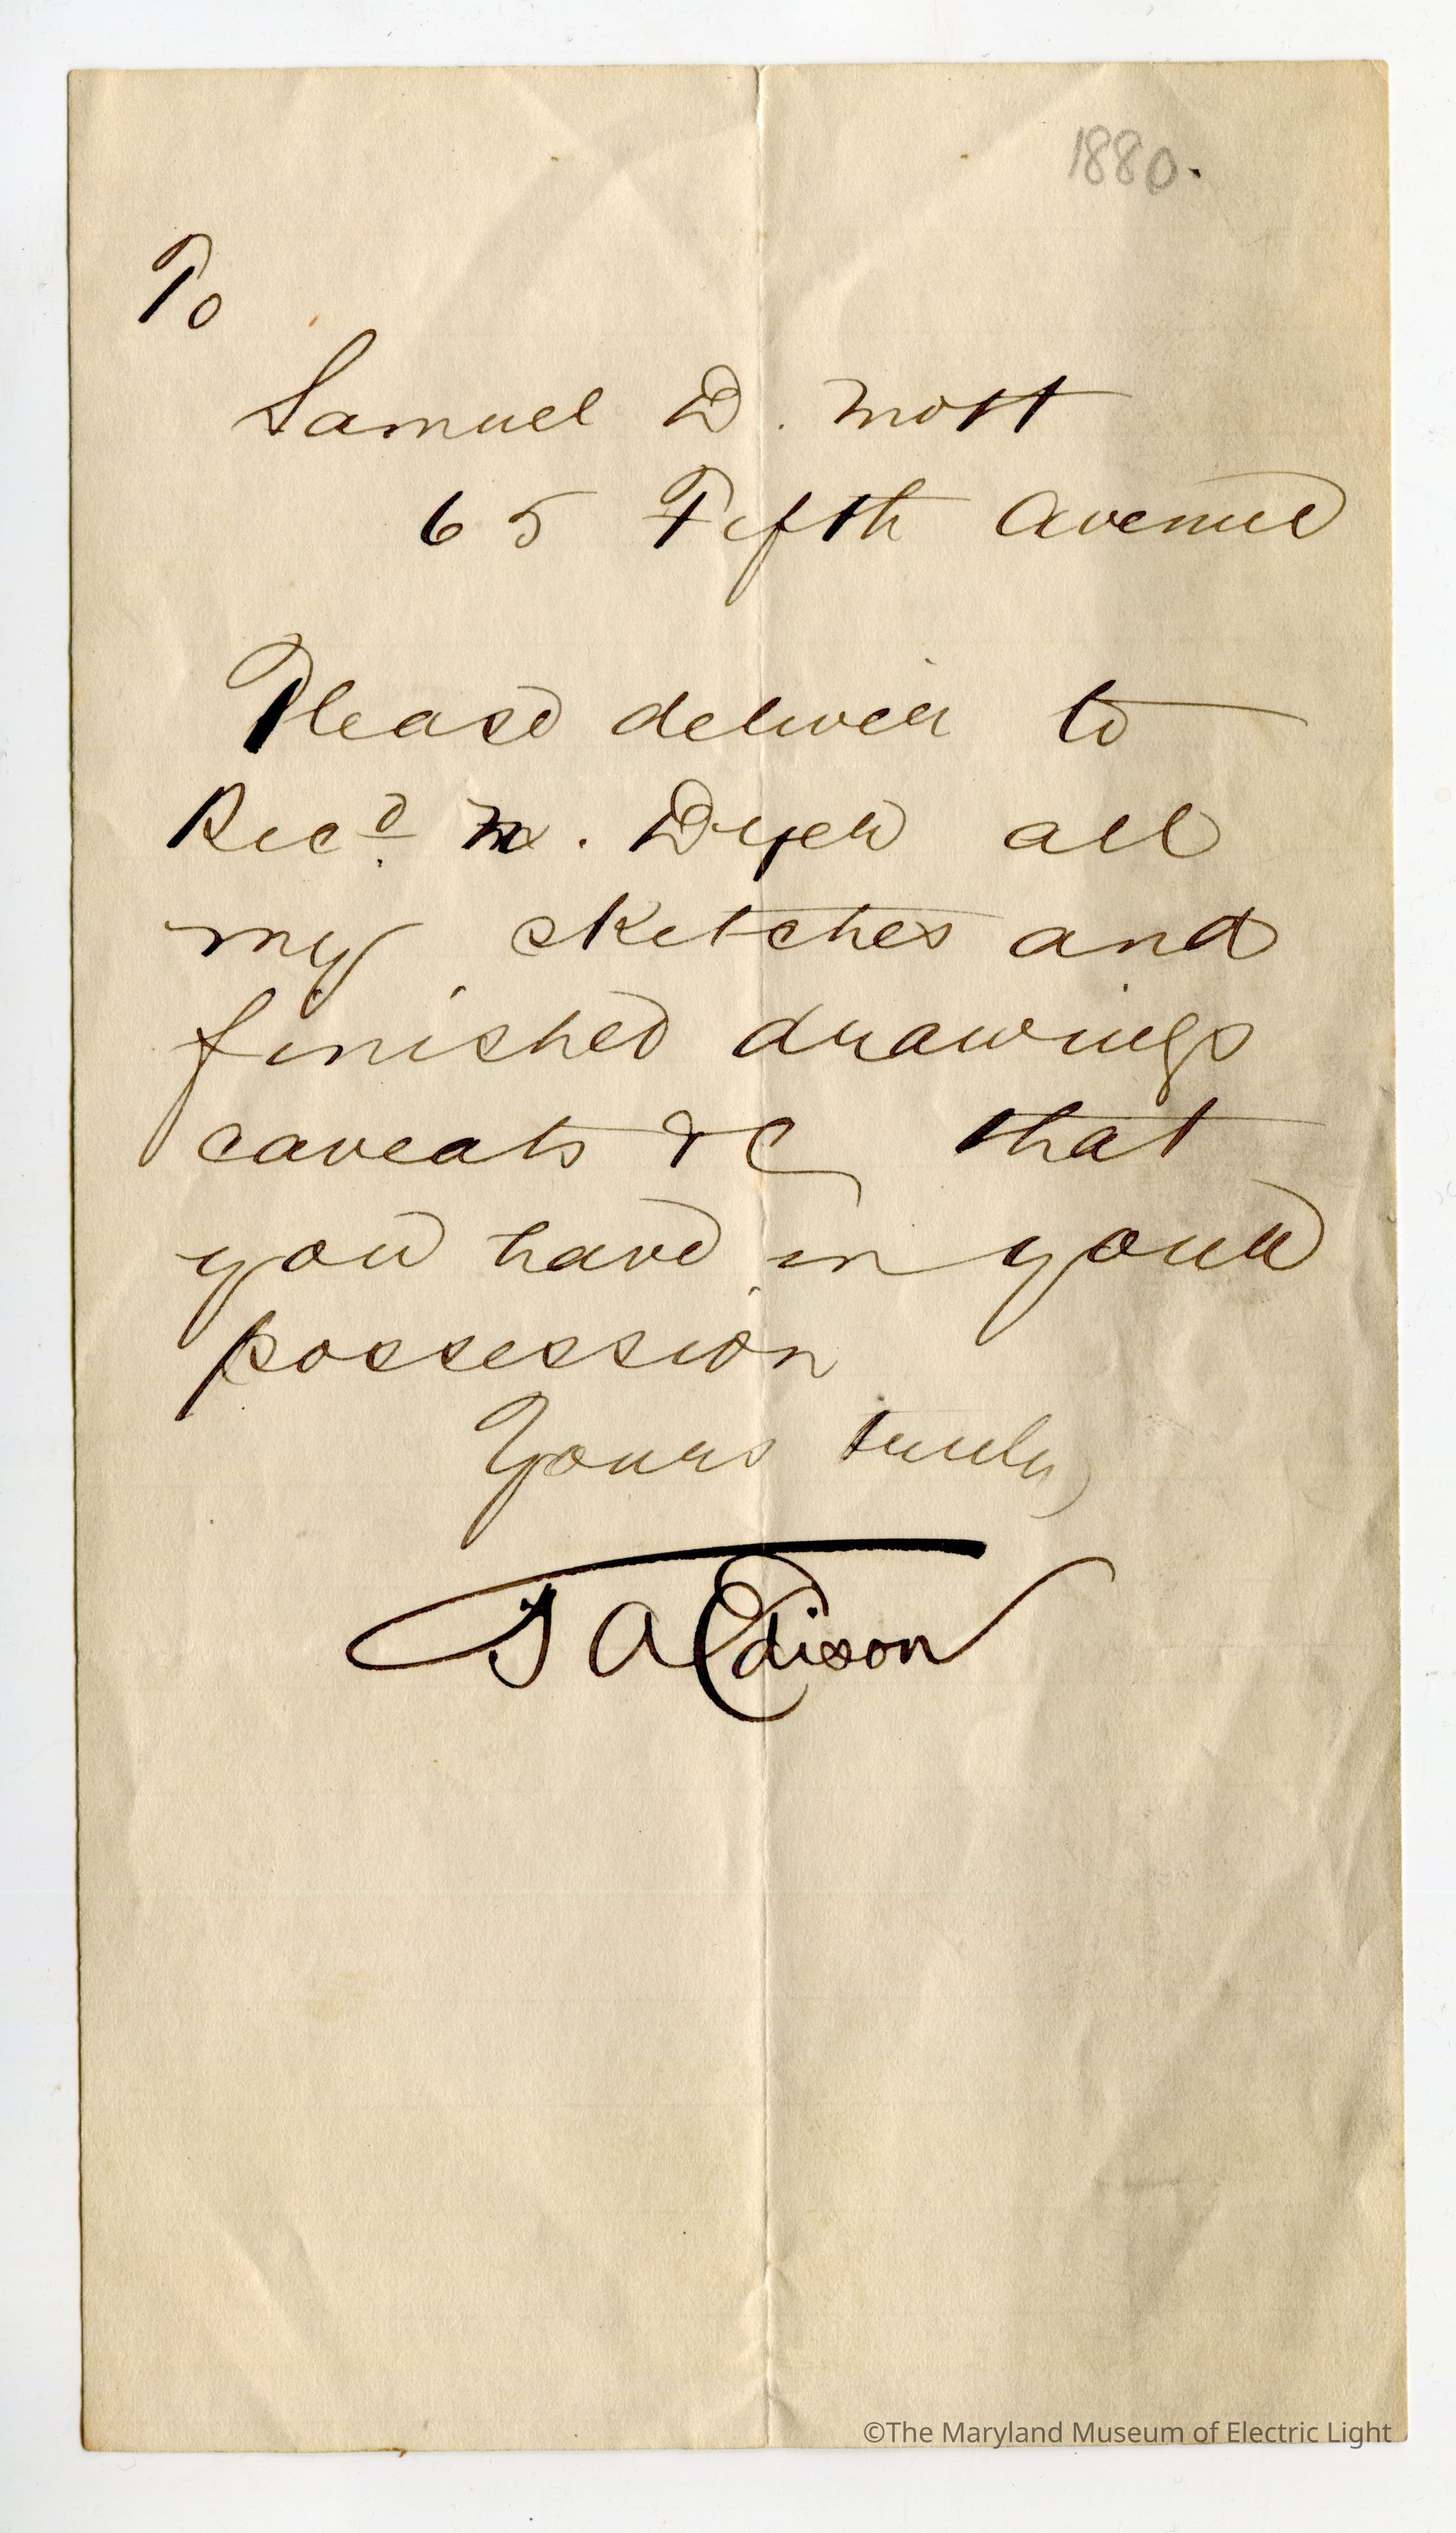 1880.
To
Samuel D. Mott
65 Fifth Avenue
Please deliver to
Ricd. N. Dyer all
my sketches and
finished drawings
caveats &C that
you have in your
possession
Yours truly
T A Edison
©The Maryland Museum of Electric Light